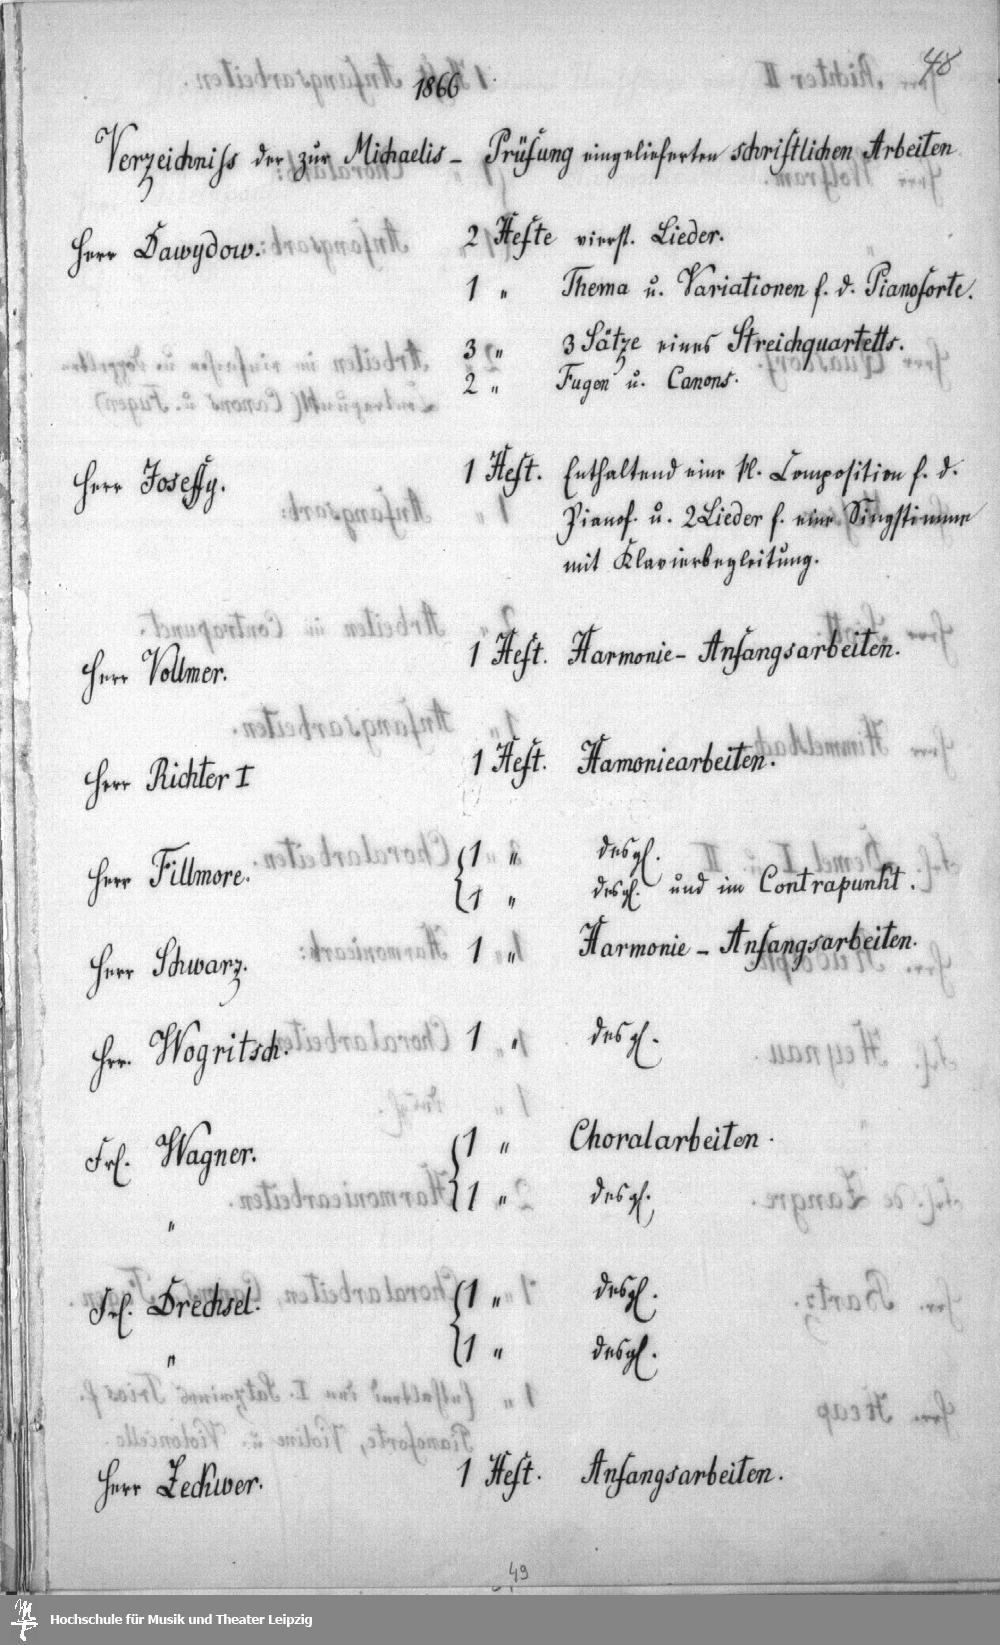 48
1866
Verzeichniss der zur Michaelis - Prüfung eingelieferten schriftlichen Arbeiten
Herr Dawydow. 2 Hefte vierst. Lieder.
1 " Thema u. Variationen f. d. Pianoforte.
3 " 3 Sätze eines Streichquartetts.
2 " Fugen u. Canons.
Herr Joseffy. 1 Heft. Enthaltend eine kl. Composition f. d.
Pianof. u. 2 Lieder f. eine Singstimme
mit Klavierbegleitung.
Herr Vollmer. 1 Heft. Harmonie - Anfangsarbeiten.
Herr Richter I 1 Heft. Hamoniearbeiten.
Herr Fillmore. 1 " desgl.
1 " desgl. und im Contrapunkt.
Herr Schwarz. 1 " Harmonie - Anfangsarbeiten.
Hrr. Wogritsch. 1 " desgl.
Frl. Wagner. 1 " Choralarbeiten.
" 1 " desgl.
Frl. Drechsel. 1 " desgl.
" 1 " desgl.
Herr Zeckwer. 1 Heft. Anfangsarbeiten.
49
Hochschule für Musik und Theater Leipzig